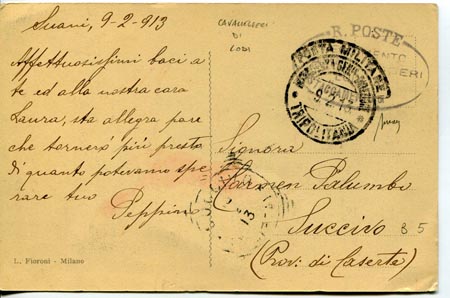 Suani, 9-2-913
Affettuosissimi baci a
te ed alla nostra cara
Laura, sta allegra pare
che tornerò più presto
di quanto potevamo spe
rare tuo
Peppino
L. Fioroni - Milano
CAVALLEGGERI
DI
LODI
R. POSTE
POSTA MILITARE
9 2 13
TRIPOLITANIA
Signora
Carmen Palumbo
Succivo
(Prov: di Caserta)
B 5
SUCCIVO
13